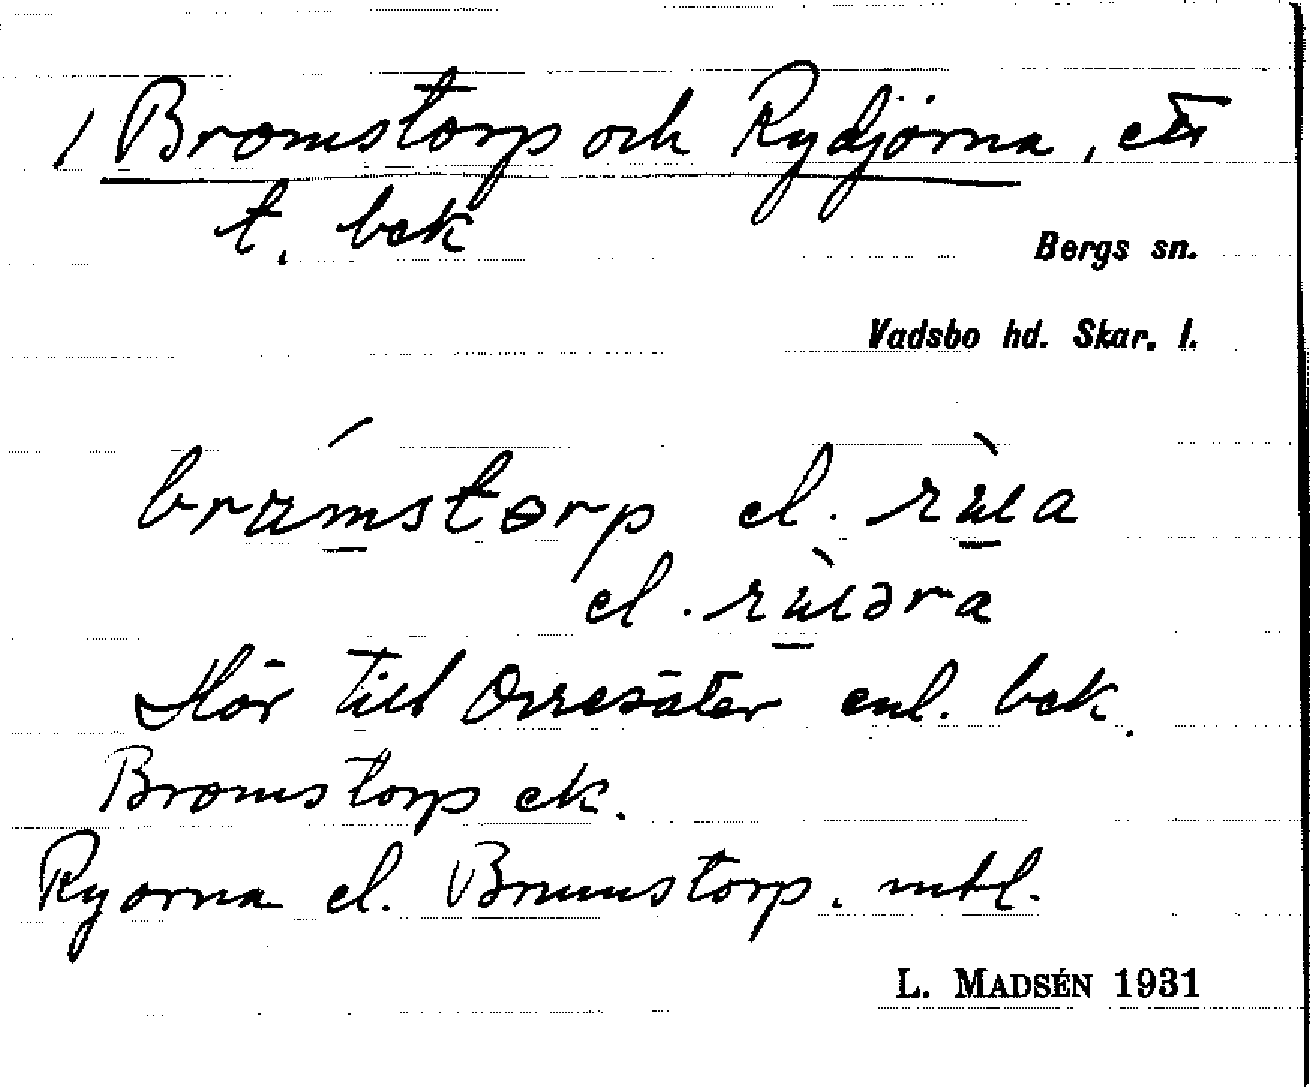 1 Bromstorp och Rydjorna, ett
t. bek
Bergs sn.
Vadsbo hd. Skar. l.
el.
el.
Hör till Orresäter enl. bek.
Bromstorp ek.
Ryorna el. Brumstorp. mtl.
L. MADSÉN 1931